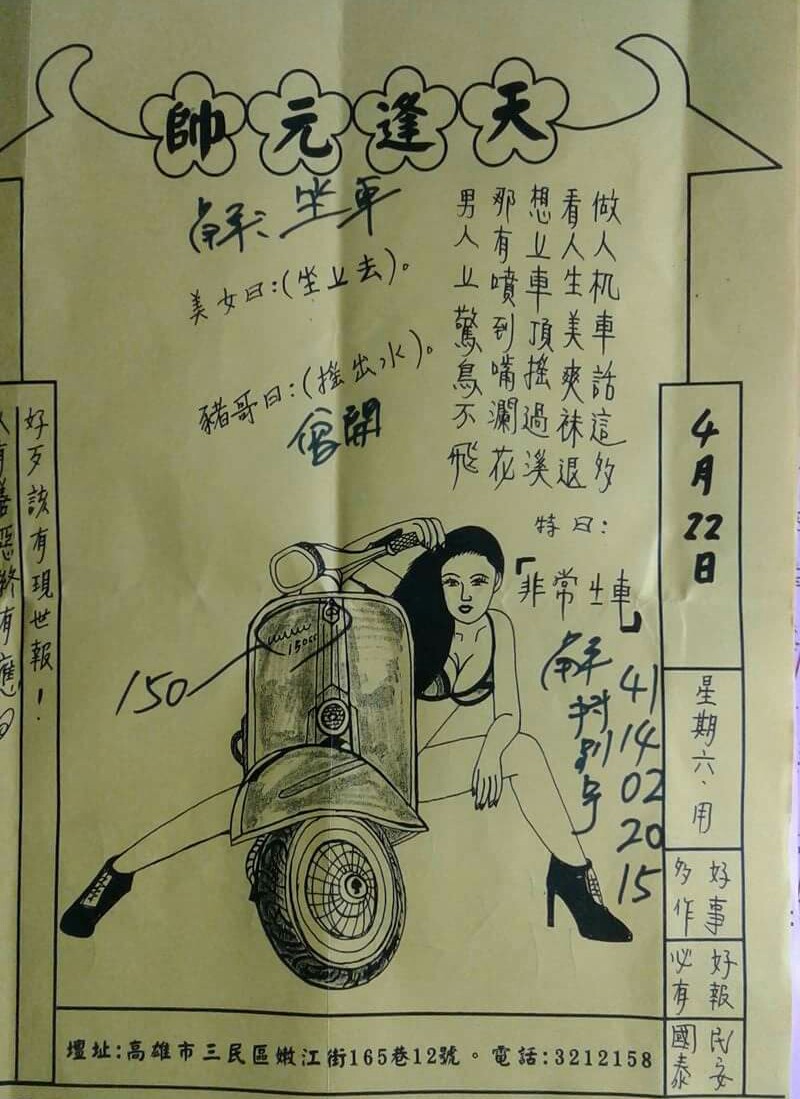 天蓬元帥
做人机車話這多
看人生美爽袜退
想ㄩ車頂搖過溪
那有噴到嘴瀾花
男人ㄩ驚鳥不飛
特曰:
「非常ㄓ車」
解坐車
美女曰:(坐ㄩ去)。
豬哥曰:(搖出水)。
會開
150
150cc
解特別号
41
14
02
20
15
4月22日
星期六、用
好事多作
好報必有
民安國泰
好歹該有現世報!
壇址:高雄市三民區嫩江街165巷12號。電話:3212158